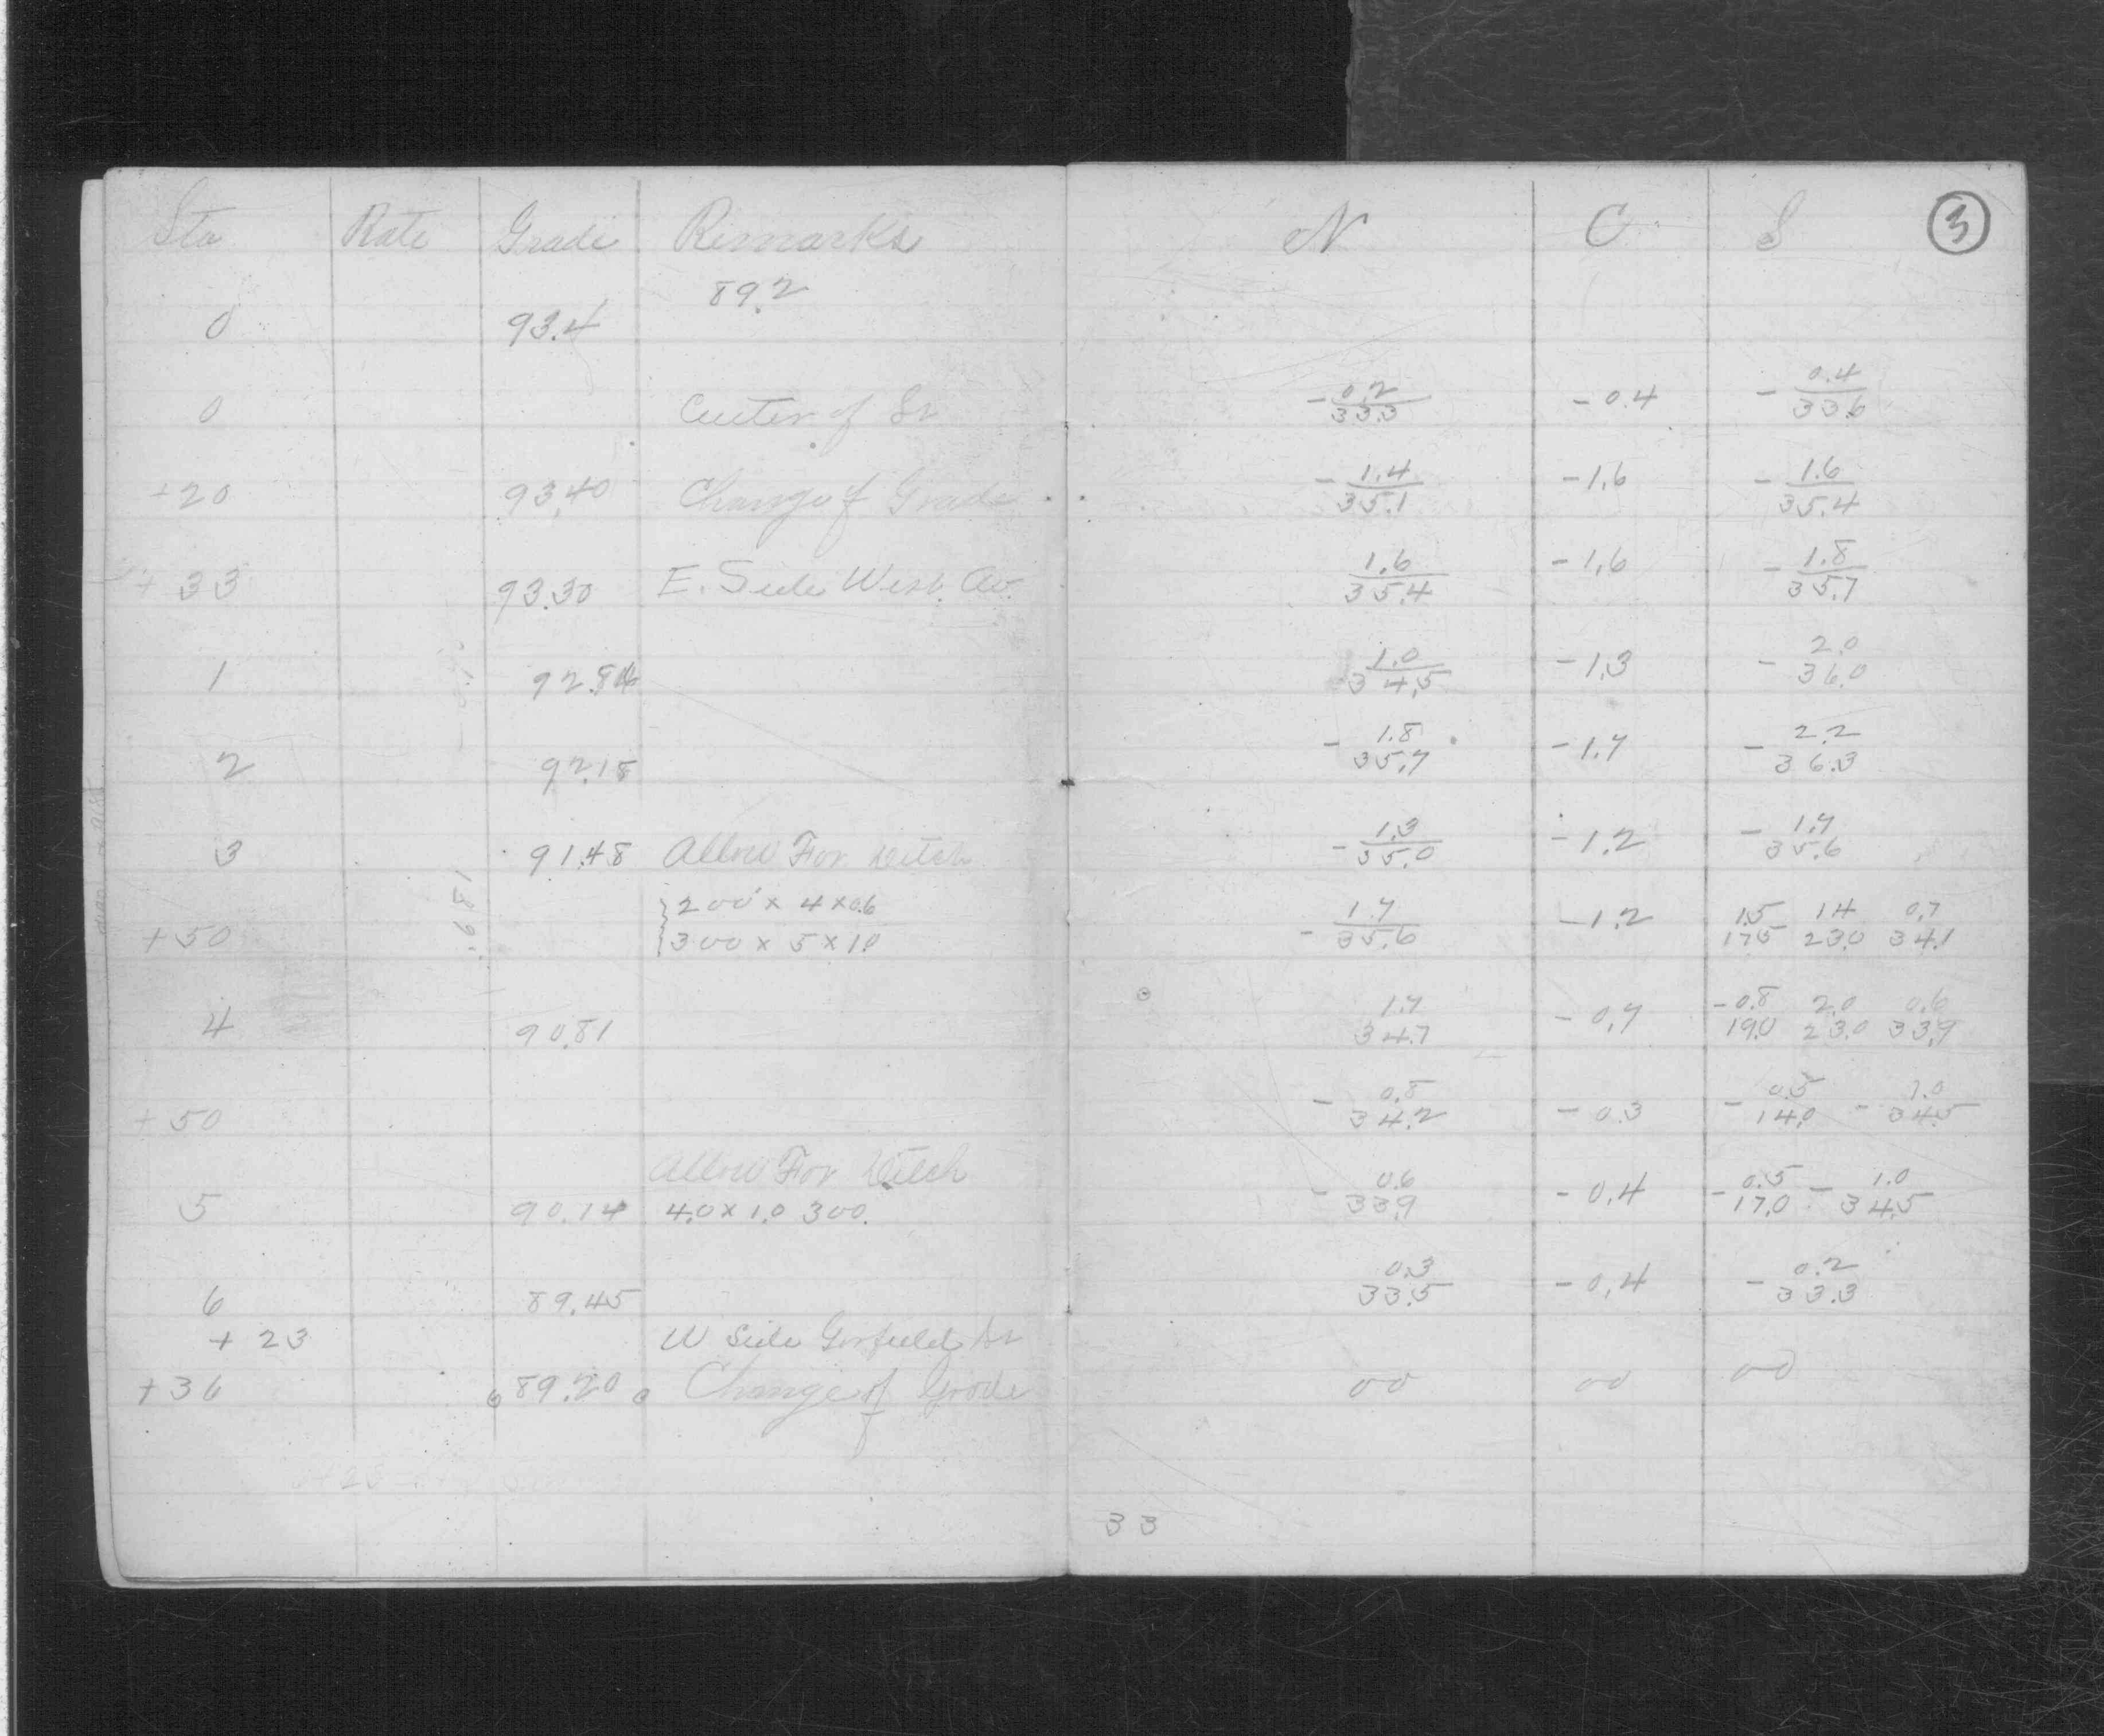 Sta Rate Grade Remarks
89.2
0 93.4
0 Center of St
+20 93.40 Change of Grade
+33 93.30 E. Side West. Av.
1 92.84
2 92.18
3 91.48 Allow For Ditch
200 x 4 x 0.6
+50 300 x 5 x 1.0
4 90.81
+50
Allow For Ditch
5 90.14 4.0 x 1.0 300.
6 89.45
+23 W Side Garfield St
+36 89.20 Change of Grade
N C S 3
- 0.2 - 0.4 - 0.4
33.3 33.6
- 1.4 - 1.6 - 1.6
35.1 35.4
1.6 - 1.6 - 1.8
35.4 35.7
1.0 - 1.3 - 2.0
34.5 36.0
- 1.8 - 1.7 - 2.2
35.7 36.3
- 1.3 - 1.2 - 1.7
35.0 35.6
- 1.7 - 1.2 1.5 1.4 0.7
35.6 17.5 23.0 34.1
1.7 - 0.7 - 0.8 2.0 0.6
34.7 19.0 23.0 33.9
- 0.8 - 0.3 - 0.5 - 1.0
34.2 14.0 34.5
- 0.6 - 0.4 - 0.5 - 1.0
33.9 17.0 34.5
0.3 - 0.4 - 0.2
33.5 33.3
00 00 00
33